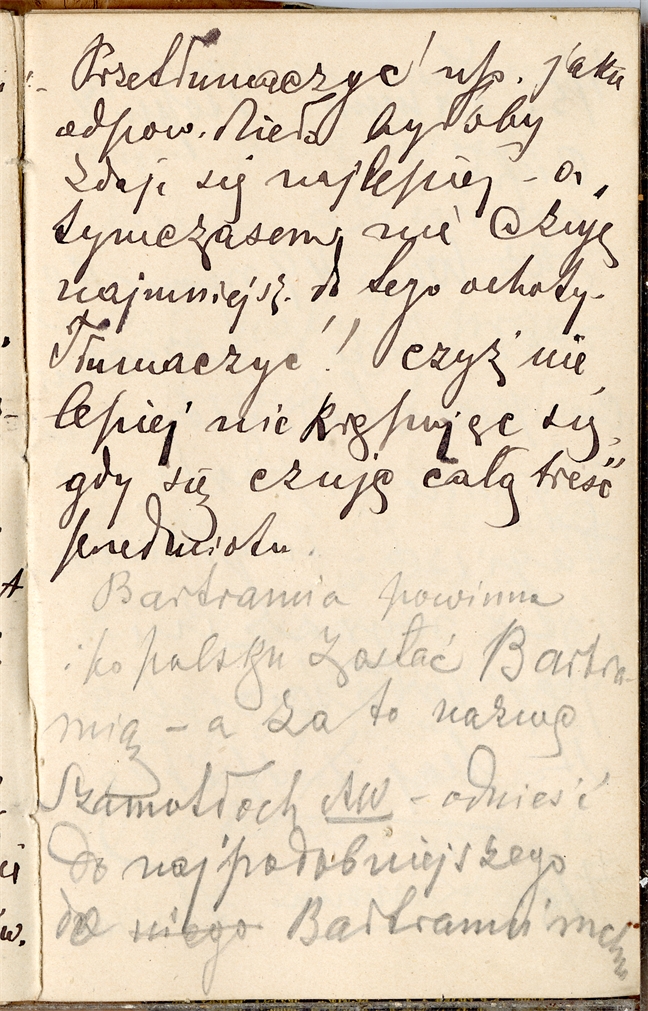 Przetłumaczyć np. jako
odpow. dzieła byłoby
zdaje się najlepiej – a,
tymczasem, nie czuję
najmniejsz. do tego ochoty.
Tłumaczyć! czyż nie
lepiej nie krępując się,
gdy się czuję całą treść
przedmiotu.
Bartramia powinna
i po polsku zostać Bartra-
mią – a za to nazwę
Szamotłoch AW – odnieść
do najpodobniejszego
do niego Bartramii mchu